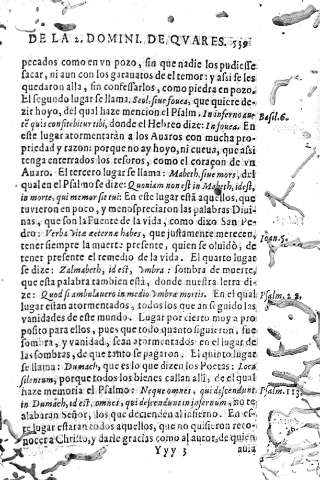 DE LA 2. DOMINI. DE QVARES. 539
pecados como en vn pozo, sin que nadie los pudiesse
sacar, ni aun con los garauatos de el temor: y assi se les
quedaron alla, sin confessarlos, como piedra en pozo.
El segundo lugar se llama, Seol. siue fouea, que quiere de-
zir hoyo, del qual haze mencion el Psalm. In inferno autē
tē quis confitebitur tibi, donde el Hebreo dize: In fouea. En
este lugar atormentarán a los Auaros con mucha pro-
priedad y razon: porque no ay hoyo, ni cueua, que assi
tenga enterrados los tesoros, como el coraçon de vn
Auaro. El tercero lugar se llama: Mabeth, siue mors, del
qual en el Psalmo se dize: Quoniam non est in Mabeth, id est,
in morte, qui memor sit tui: En este lugar està aquellos, que
tuvieron en poco, y menospreciaron las palabras Diui-
nas, que son la Fuente de la vida, como dixo San Pe-
dro: Verba vitæ æternæ habes, que justamente merecen,
tener siempre la muerte presente, quien se oluidò, de
tener presente el remedio de la vida. El quarto lugar
se dize: Zalmabeth, id est, Ymbra: sombra de muerte,
que esta palabra tambien està, donde nuestra letra di-
ze: Quod si ambulauero in medio Ymbræ mortis. En el qual
lugar estan atormentados, todos los que an siguido las
vanidades de este mundo. Lugar por cierto muy a pro
posito para ellos, pues que todo quanto siguieron, fue
sombra, y vanidad, sean atormentados en el lugar de
las sombras, de que tanto se pagaron. El quinto lugar
se llama: Dumach, que es lo que dizen los Poetas: Loca
silentum, porque todos los bienes callan alli, de el qual
haze memoria el Psalmo: Neque omnes, qui descendunt
in Dumàch, id est, omnes, qui descendunt in infernum, no te
alabaràn Señor, los que decienden al infierno. En es-
te lugar estaràn todos aquellos, que no quisieron reco-
nocer a Christo, y darle gracias como al autor, de quien
Yyy 3
auia
Basil. 6.
Joan. 5.
Psalm. 22.
Psalm. 113.